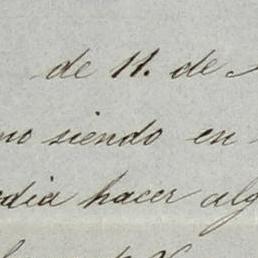 de 11. de
no siendo en
edia hacer alg